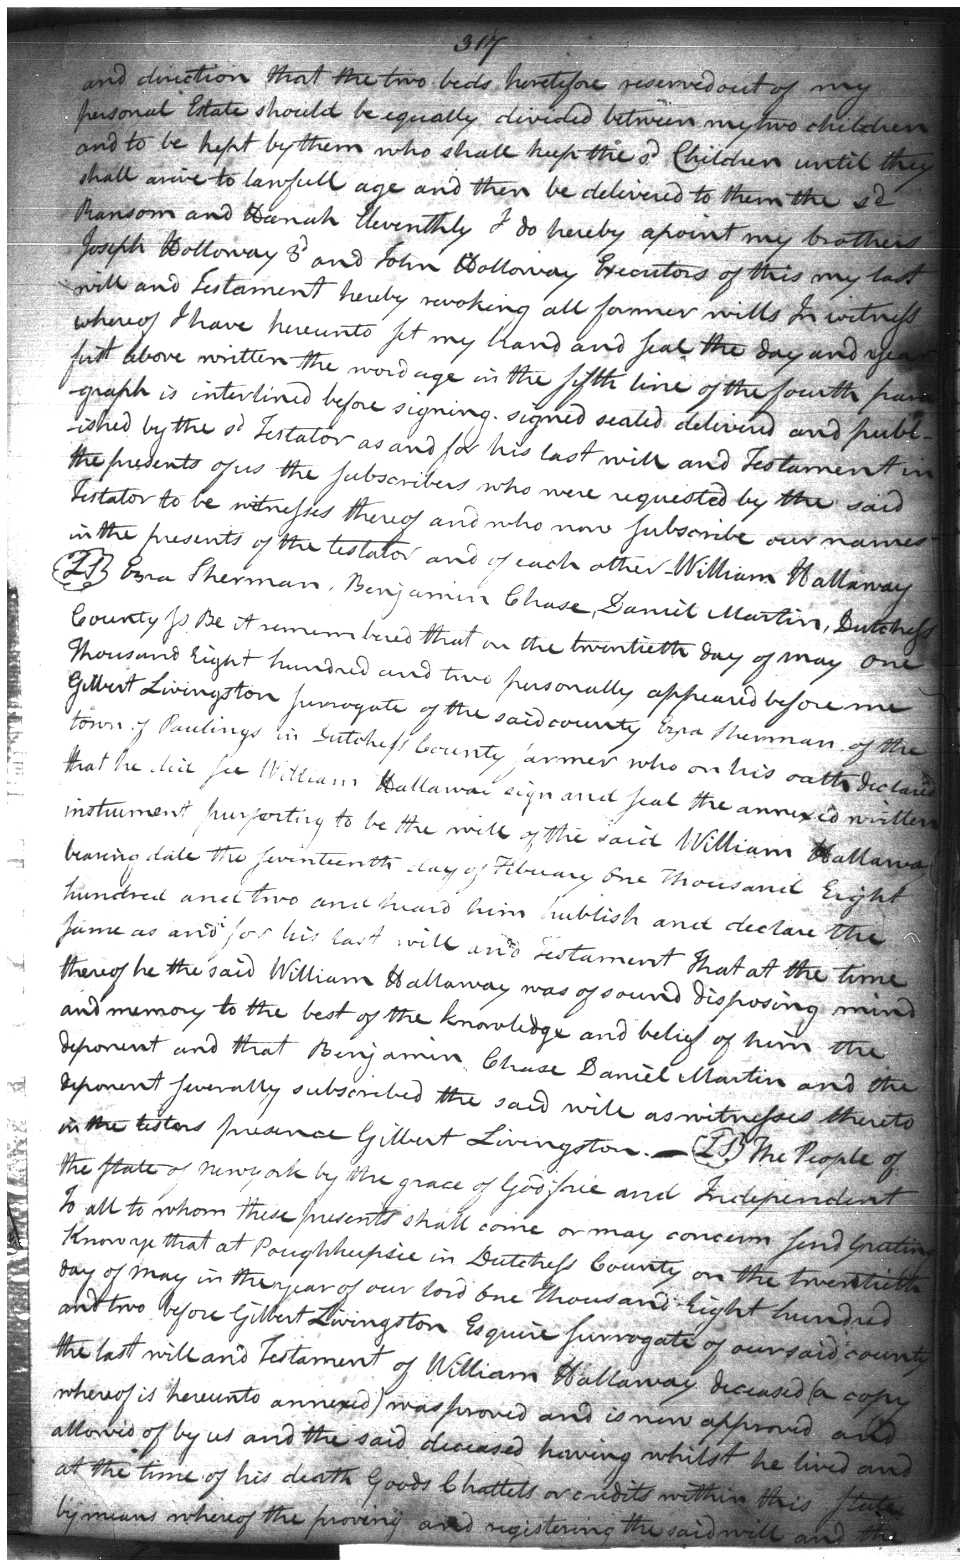 317
and direction that the two beds heretofore reserved out of my
personal Estate should be equally divided between my two children
and to be kept by them who shall keep the sd Children until they
shall arive to lawfull age and then be delivered to them the sd
Ransom and Hanah Eleventhly I do hereby apoint my brothers
Joseph Holloway 3d and John Holloway Executors of this my last
will and Testament hereby revoking all former wills In witness
whereof I have hereunto set my hand and seal the day and year
first above written the word age in the fifth line of the fourth para
-graph is interlined before signing. signed sealed delivered and publ-
-ished by the sd Testator as and for his last will and Testament in
the presents of us the subscribers who were requested by the said
Testator to be witnesses thereof and who now subscribe our names
in the presents of the testator and of each other - William Hallaway
(LS) Ezra Sherman, Benjamin Chase, Daniel Martin, Dutchess
County Ss Be it remembered that on the twentieth day of may one
Thousand Eight hundred and two personally appeared before me
Gilbert Livingston surrogate of the said county Ezra Sherman of the
town of Paulings in Dutchess County farmer who on his oath declared
that he did see William Hallawai sign and seal the annexed written
instrument purporting to be the will of the said William Hallawa
bearing date the seventeenth day of February One Thousand Eight
hundred and two and heard him publish and declare the
same as and for his last will and Testament That at the time
thereof he the said William Hallaway was of sound disposing mind
and memory to the best of the knowledge and belief of him the
deponent and that Benjamin Chase Daniel Martin and the
deponent severally subscribed the said will as witnesses thereto
in the testers presence Gilbert Livingston. — (LS) The People of
the State of Newyork by the grace of God free and Independent
To all to whom these presents shall come or may concern send Greting
Know ye that at Poughkeepsie in Dutchess County on the twentieth
day of May in the year of our lord One Thousand Eight hundred
and two before Gilbert Livingston Esquire surrogate of our said county
the last will and Testament of William Hallaway deceased (a copy
whereof is hereunto annexed) was proved and is now approved and
allowed of by us and the said deceased having whilst he lived and
at the time of his death Goods Chattels or credits within this State
by means whereof the proving and registering the said will and the